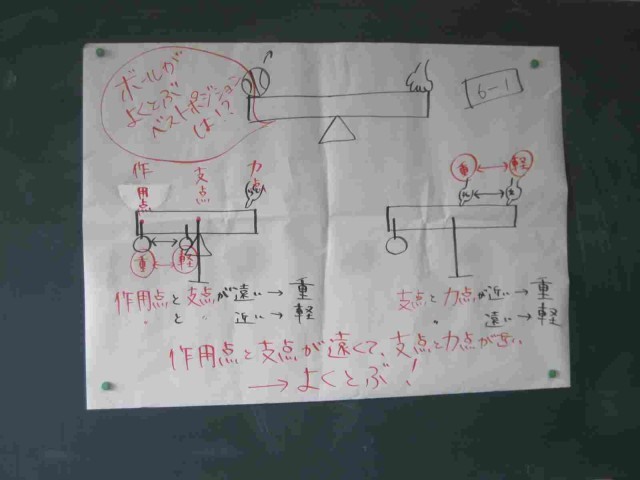 ボールが
よくとぶ
ベストポジション
は!?
6-1
作用点
支点
力点
重 軽
重 軽
作用点と支点が遠い→重
〃 と 〃 近い→軽
支点と力点が近い→重
〃 遠い→軽
作用点と支点が遠くて、支点と力点が
→よくとぶ!